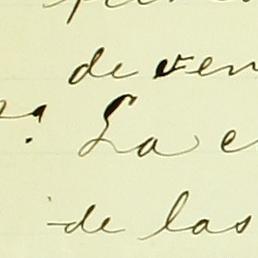 de ven
La e
de las